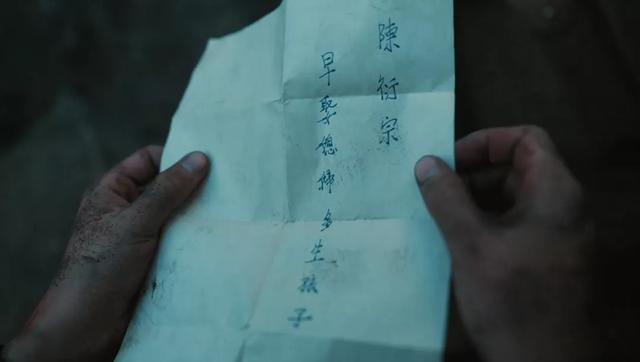 陳衍宗
早娶媳婦多生孩子